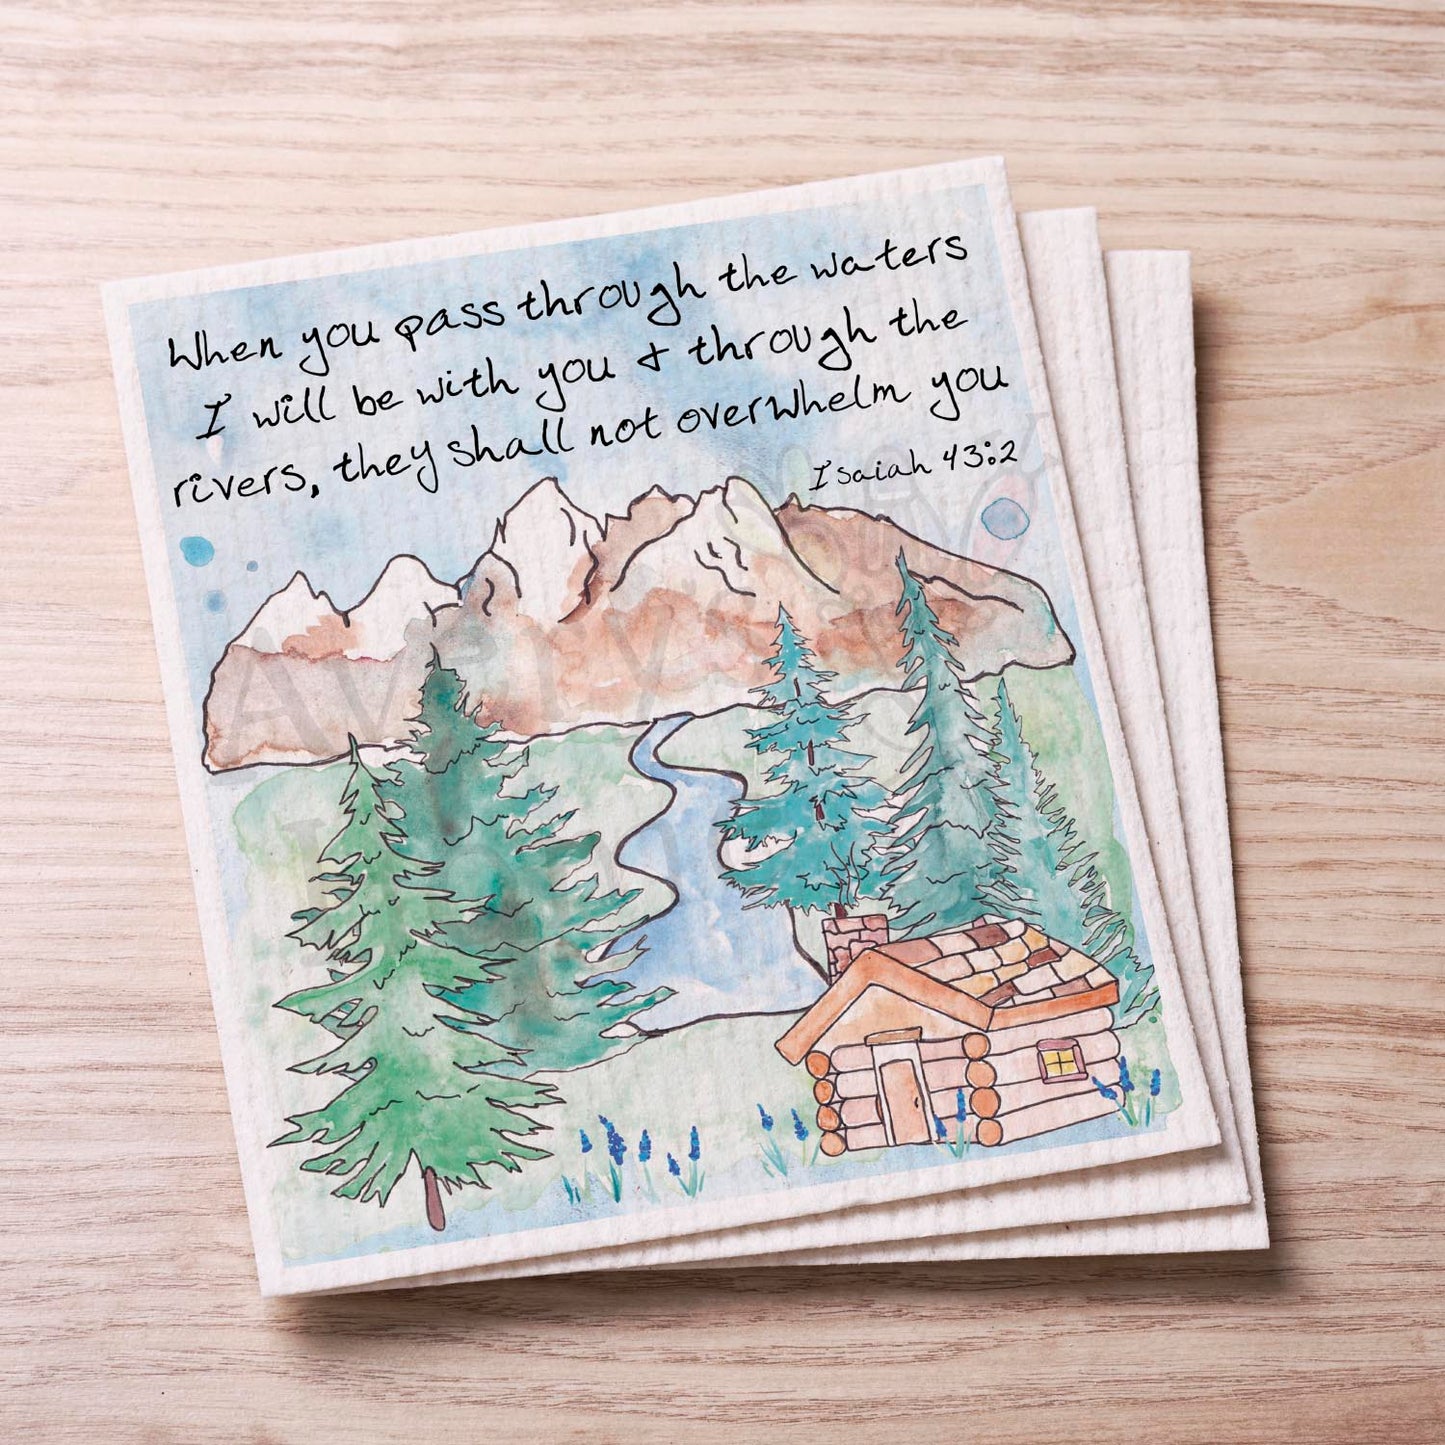 When you pass through the waters
I will be with you & through the
rivers, they shall not overwhelm you
Isaiah 43:2
Avery's